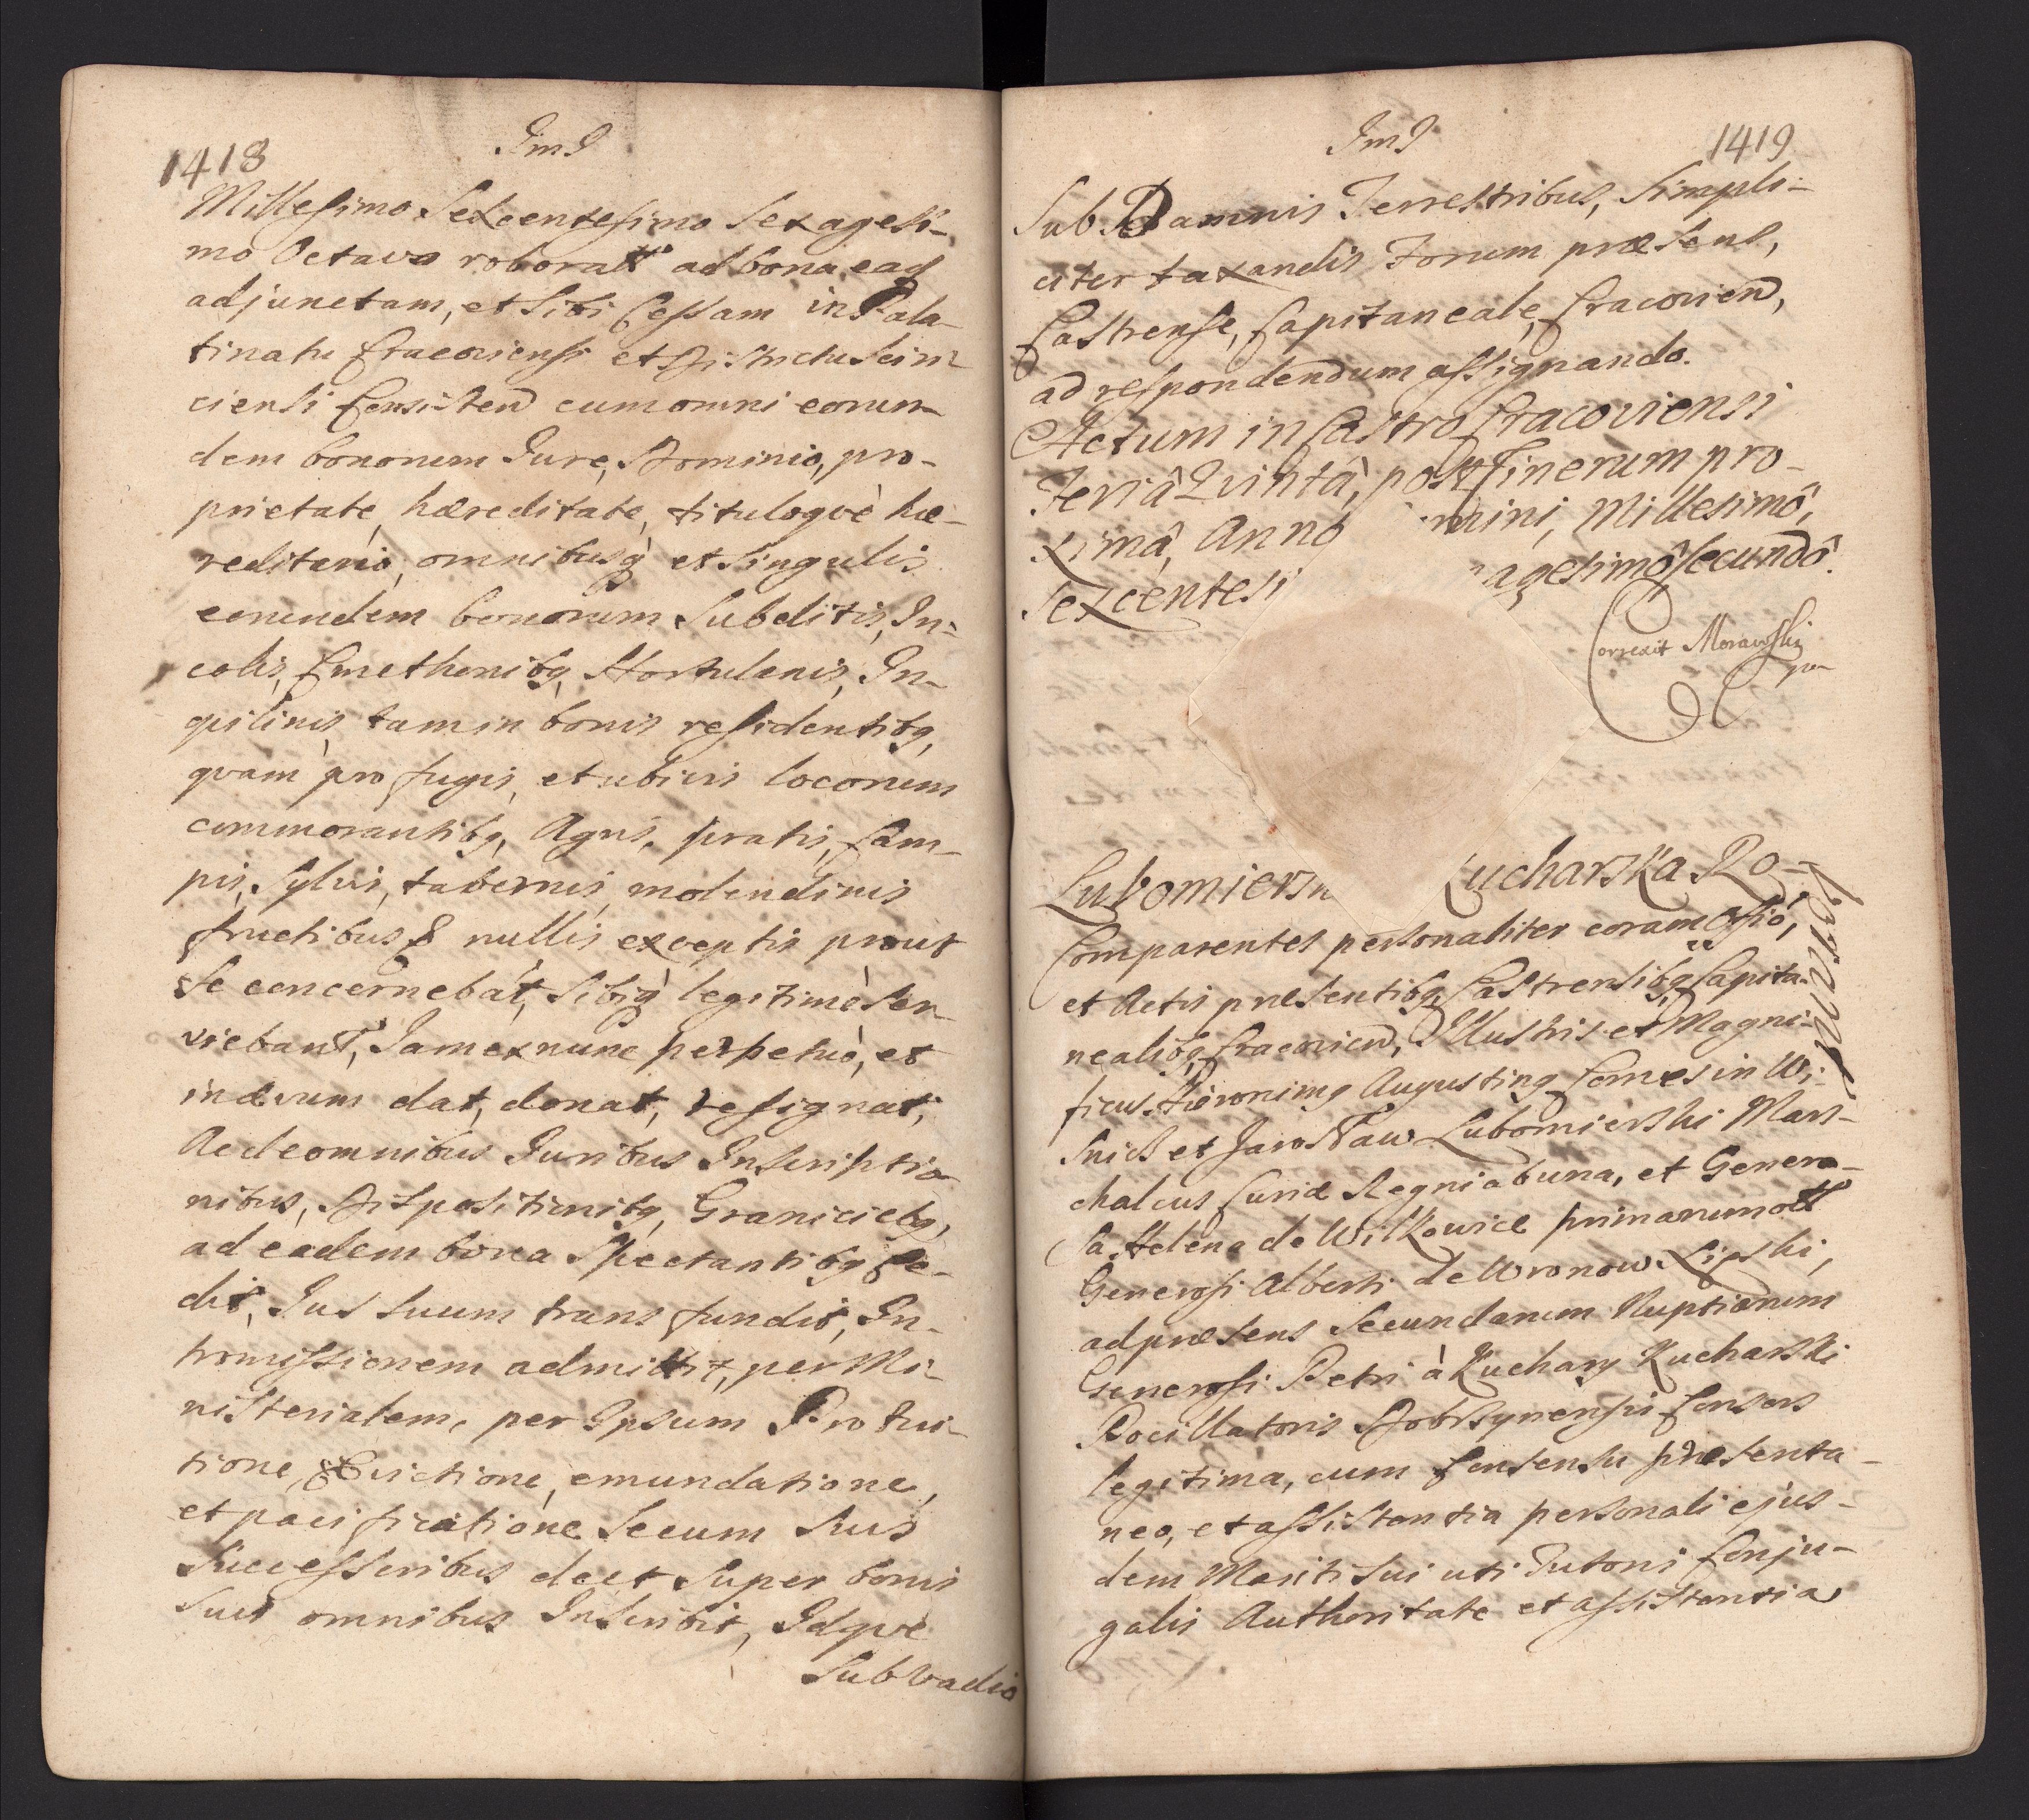 1418
ImI
Millesimo Sexcentesimo Sexagesi-
mo Octavo roborat ad bona ead
adjunctam, et Sibi Cessam in Pala-
tinatu Cracoviensi et Districtu Scin-
ciensi Consisten cum omni eorun-
dem bonorum Jure, Dominio, pro-
prietate, hæreditate, tituloqvè hæ-
reditario, omnibusq et Singulis
eorundem bonorum Subditis, In-
colis, Cmethonibq, Hortulanis, In-
qvilinis, tam in bonis residentibq,
qvam profugis, et ubivis locorum
commorantibq, Agris, pratis, Cam-
pis, Sylvis, tabernis, molendinis
fructibus & nullis exceptis prout
Se concernebat, Sibiq legitimè Ser-
viebant, Jam ex nunc perpetuò, et
in ævum dat, donat, resignat,
Ac de omnibus Juribus Inscriptio-
nibus, Dispositionibq, Graniciebq,
ad eadem bona Spectantibq ce-
dit, Jus Suum transfundit, In-
tromissionem admittit, per Mi-
nisterialem, per Ipsum Pro tui-
tione, Evictione, emundatione,
et pacificatione Secum Suis
Successoribus de et Super bonis
Suis omnibus Inscribit, Idqvè
Sub vadio
ImI
1419
Sub Damnis Terrestribus, Simpli-
citer taxandis Forum præsens,
Castrense, Capitaneale, Cracovien,
ad respondendum assignando.
Actum in Castro Cracoviensi
Feriâ Qvintâ, post Cinerum pro-
ximâ, Anno mini, Millesimô,
Sexcentesi agesimô Secundô.
Correxit Morawski
Lubomiersk Kucharska Ro-
borant
Comparentes personaliter coram Offio,
et Actis præsentibq Castrensibq Capita-
nealibq Cracovien, Illustris et Magni-
ficus Hieronimq Augustinq Comes in Wi-
snicz et Jarosław Lubomierski Mars-
chalcus Curiæ Regni ab una, et Genero-
sa Helena de Witkowice primarum
Generosi Alberti de Wronow Lipski,
ad præsens Secundarum Nuptiarum
Generosi Petri à Kuchary Kucharski
Pocillatoris Dobrzynensis Consors
legitima, cum Consensu præsenta-
neo, et assistentia personali ejus-
dem Mariti Sui uti Tutoris Conju-
galis Authoritate et assistentia